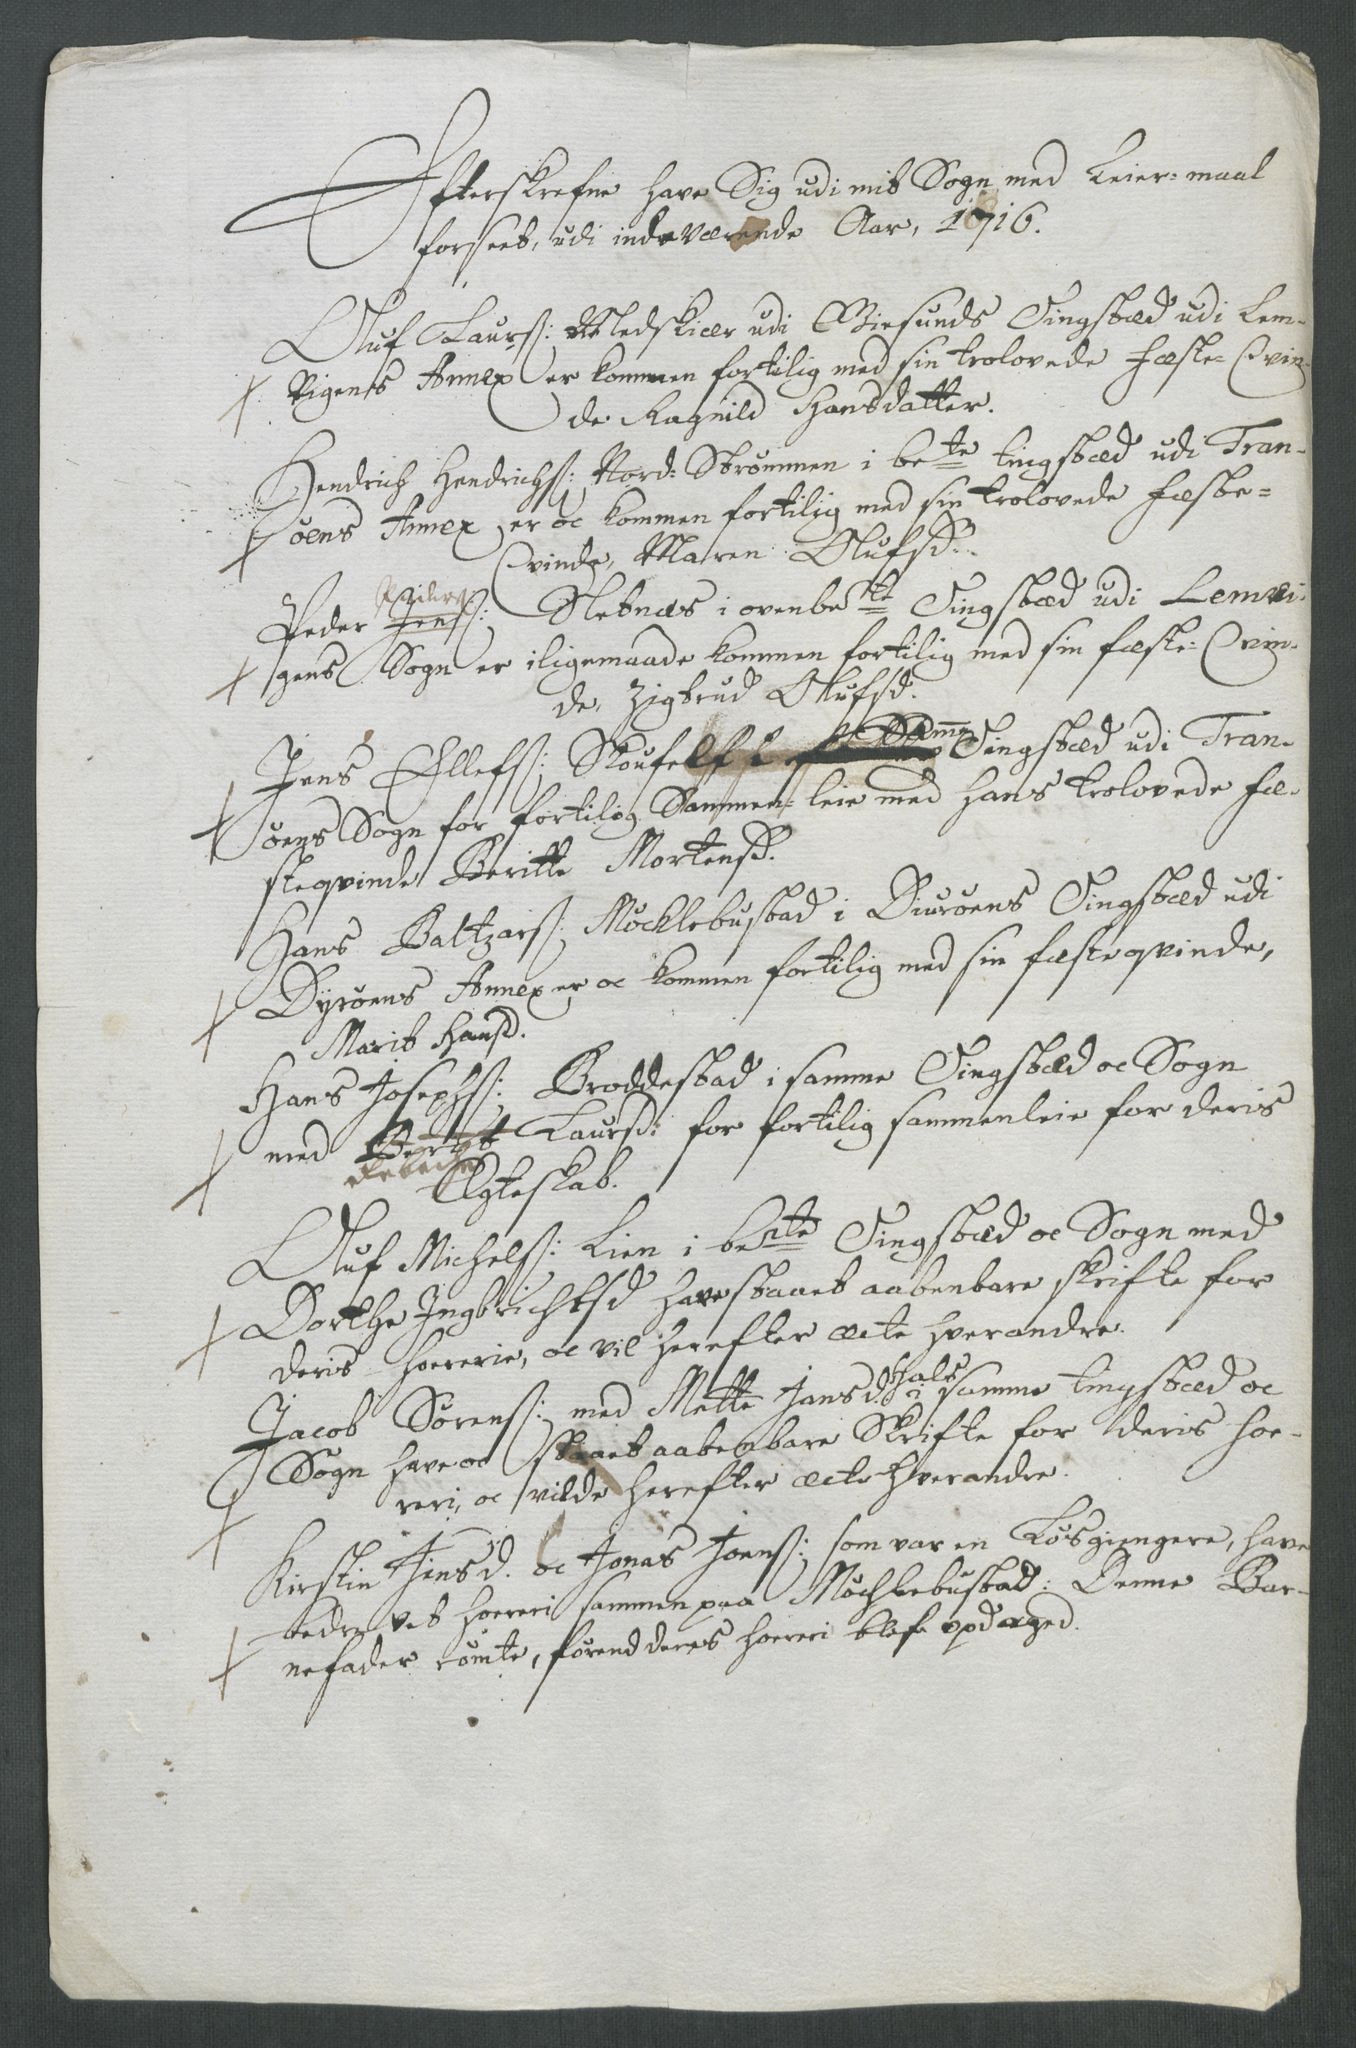 Efterskrefne have Sig udi mit Sogn med Leier-maal
forseet, udi indeværende Aar, 1716.
Oluf Laurs: Medskiær udi Giesunds Tingstæd udi Lem-
vigens Annex er kommen fortilig med sin trolovede Fæste-Qvin-
de Ragnild Hansdatter.
Hendrich Hendrichs: Nord-Strømmen i bete tingstæd udi Tran-
øens Annex er oc kommen fortilig med sin trolovede Fæste-
Qvinde, Maren Olufsd.
Peder Jens: Sletnæs i ovenbete Tingstæd udi Lemvi-
gens Sogn er iligemaade kommen fortilig med sin Fæste-Qvin-
de, Zigtrud Olufsd.
Samme
Jens Ellefs: Skoufelf Tingstæd udi Tran-
øens Sogn for fortilig Sammen-leie med Hans trolovede Fæ-
steqvinde Beritte Mortensd.
Hans Baltzars: Møcklebustad i Diurøens Tingstæd udi
Dyrøens Annex er oc kommen fortilig med sin fæsteqvinde,
Marit Hansd.
Hans Josephs: Broddestad i samme Tingstæd oc Sogn
med Berit Laursd: for fortilig sammenleie for deris
Rebecha
Ægteskab.
Oluf Michels: Lien i bente Tingstæd oc Sogn med
Dorthe Ingbrichtsd have staaet aabenbare skrifte for
deris hoererie, oc vil herefter ecte hverandre.
Jacob Sørens: med Mette Jansd. Hals i samme tingstæd oc
Sogn have oc staaet aabenbare Skrifte for deris hoe-
reri, oc vilde herefter ecte hverandre.
Kirstin Jensd. oc Jonas Joens: som var en Løsgiengere, have
bedrevet hoereri sammen paa Møchlebustad: Denne Bar-
nefader rømte, førend deres hoereri blef opdaged.